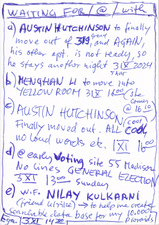 WAITING FOR / @ / with
a) AUSTIN HUTCHINSON to finally
move out of 3A9 and AGAIN
his other apt. is not ready so
he stays another night 31 X 2024
b) MENGHAN LI to move into
YELLOW ROOM 31 X 18 she
c) AUSTIN HUTCHINSON
Finally moved out. ALL COOL
no loud works etc. 1 XI 16
d) @ early Voting site 55 Hudson
No lines GENERAL ELECTION
3 XI 13 Sunday
e) w. F. NILAY KULKARNI
(friend to help me create
searchable data base for my 10.000
3 XI 14